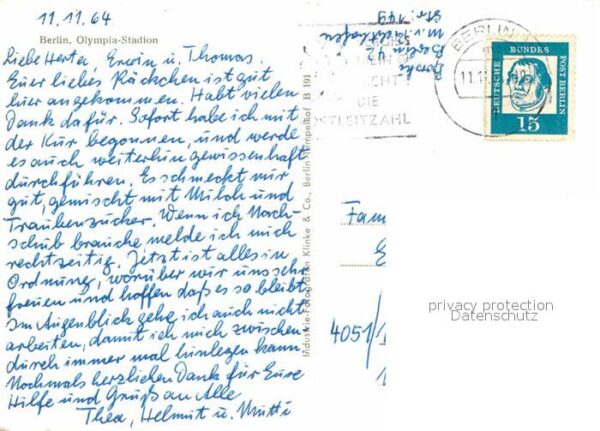 11.11.64
Berlin, Olympia-Stadion
Liebe Herta, Erwin u. Thomas.
Euer liebes Päckchen ist gut
hier angekommen. Habt vielen
Dank dafür. Sofort habe ich mit
der Kur begonnen, und werde
es auch weiterhin gewissenhaft
durchführen. Es schmeckt mir
gut, gemischt mit Milch und
Traubenzucker. Wenn ich Nach-
schub brauche melde ich mich
rechtzeitig. Jetzt ist alles in
Ordnung, worüber wir uns sehr
freuen und hoffen daß es so bleibt.
Im Augenblick gehe ich auch nicht
arbeiten, damit ich mich zwischen
durch immer mal hinlegen kann.
Nochmals herzlichen Dank für Eure
Hilfe und Gruß an Alle
Thea, Helmut u. Mutti
Industrie-Fotografen Klinke & Co., Berlin-Tempelhof B 191
1 Berlin 42
Str. 149
DIE
POSTLEITZAHL
BERLIN
DEUTSCHE BUNDESPOST BERLIN
15
Fam
E
4051/
privacy protection
Datenschutz